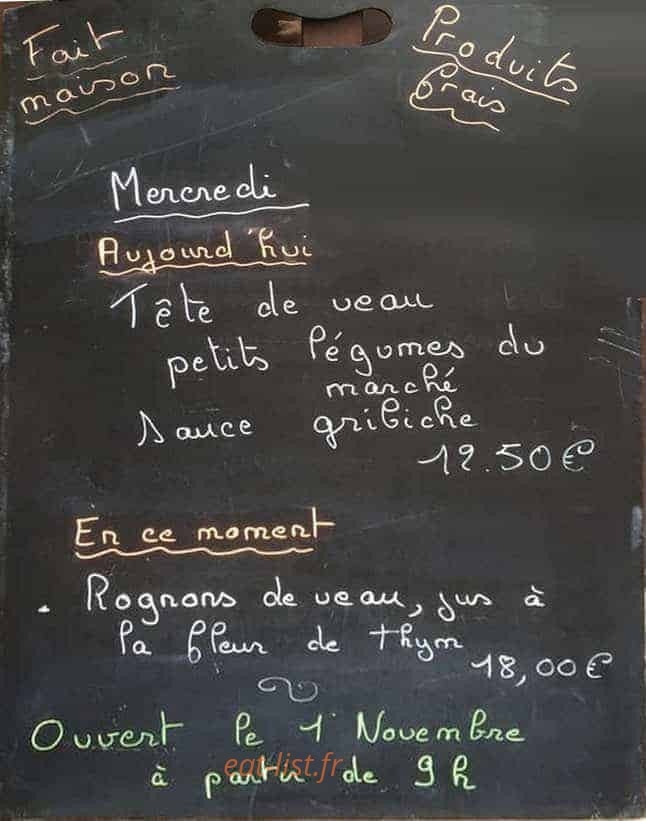 Fait
maison
Produits
frais
Mercredi
Aujourd'hui
Tête de veau
petits légumes du
marché
sauce gribiche
12.50€
En ce moment
. Rognons de veau, jus à
la fleur de thym
18,00€
Ouvert le 1 Novembre
eat-list.fr
à partir de 9h